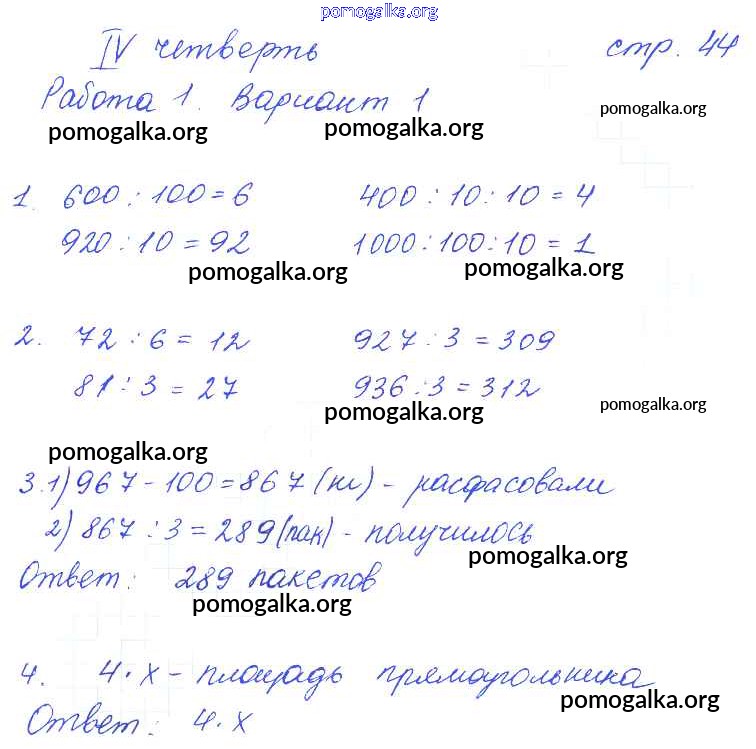 pomogalka.org
IV четверть стр. 44
Работа 1. Вариант 1
pomogalka.org pomogalka.org pomogalka.org
1. 600 : 100 = 6 400 : 10 : 10 = 4
920 : 10 = 92 1000 : 100 : 10 = 1
pomogalka.org pomogalka.org
2. 72 : 6 = 12 927 : 3 = 309
81 : 3 = 27 936 : 3 = 312
pomogalka.org pomogalka.org
pomogalka.org
3. 1) 967 - 100 = 867 (кг) - расфасовали
2) 867 : 3 = 289 (пак) - получилось
pomogalka.org
Ответ: 289 пакетов
pomogalka.org
4. 4 · x - площадь прямоугольника
pomogalka.org
Ответ: 4 · x